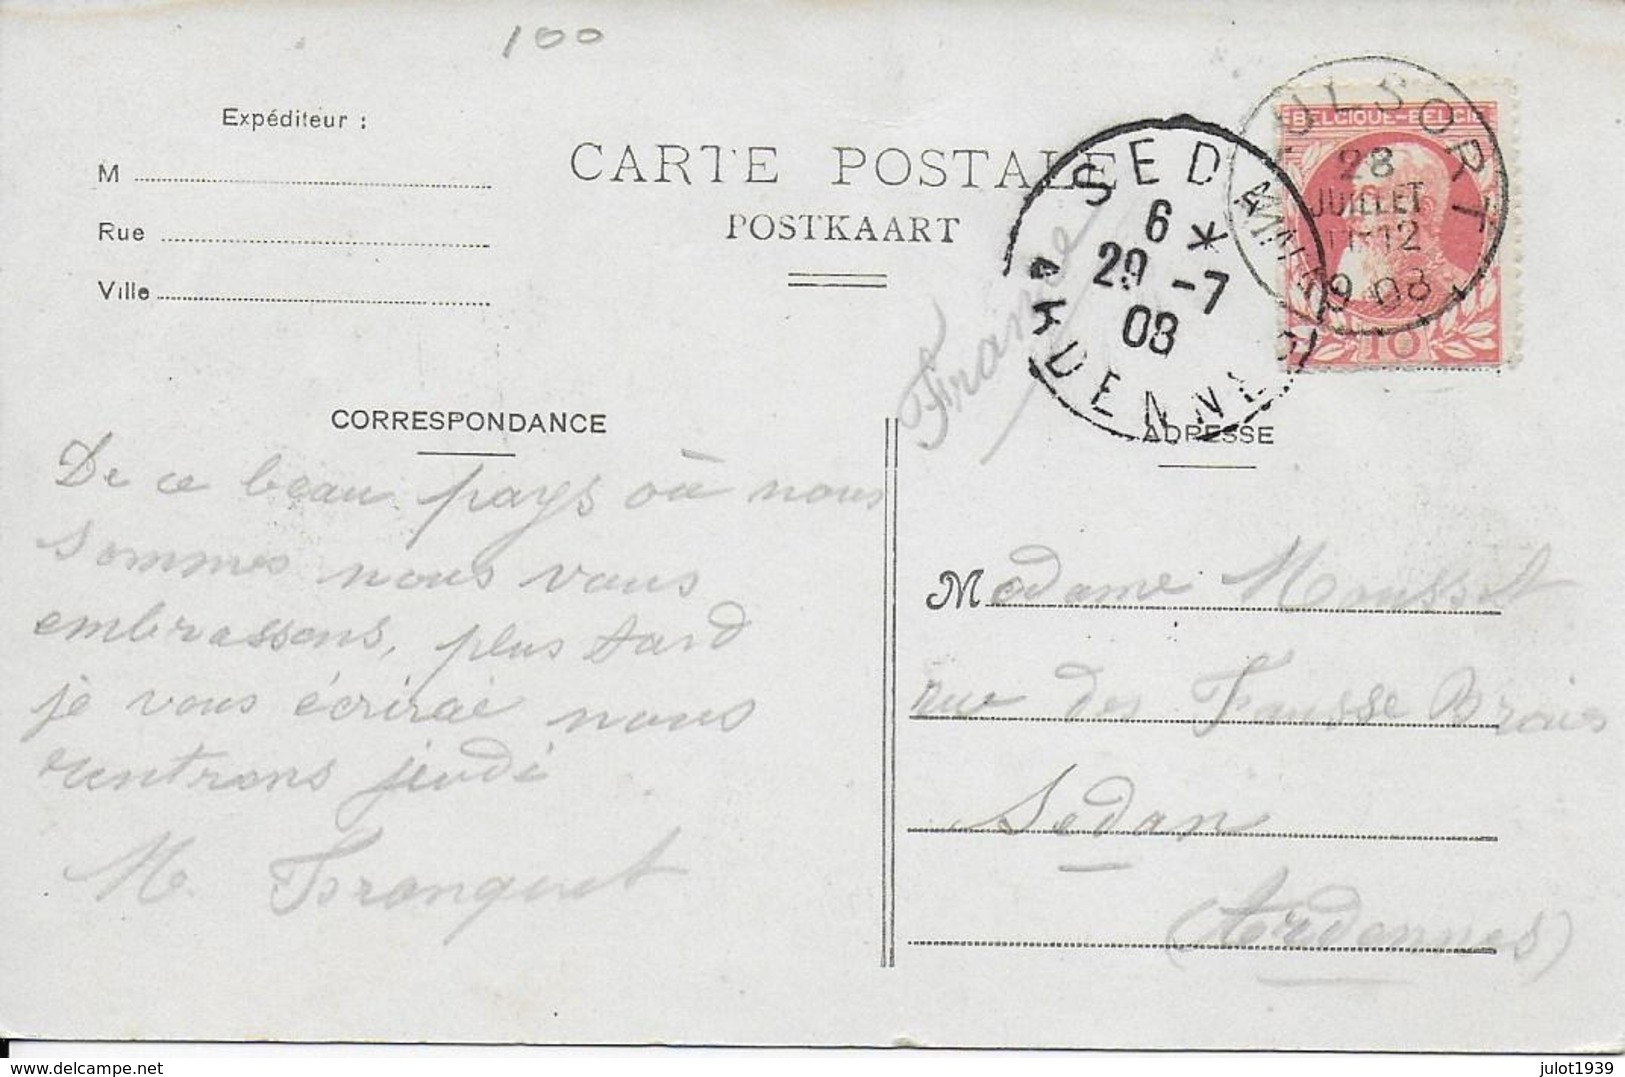 100
Expéditeur :
M
Rue
Ville
CARTE POSTALE
POSTKAART
France
SEDAN
6 *
29 -7
08
ARDENNES
HULSORT
28
JUILLET
11-12
1908
BELGIQUE-BELGIË
10
CORRESPONDANCE
De ce beau pays où nous
sommes nous vous
embrassons, plus tard
je vous écrirai nous
rentrons jeudi
M. Franquet
ADRESSE
Madame Mousset
rue des Fausse Braies
Sedan
(Ardennes)
delcampe.net
julot1939